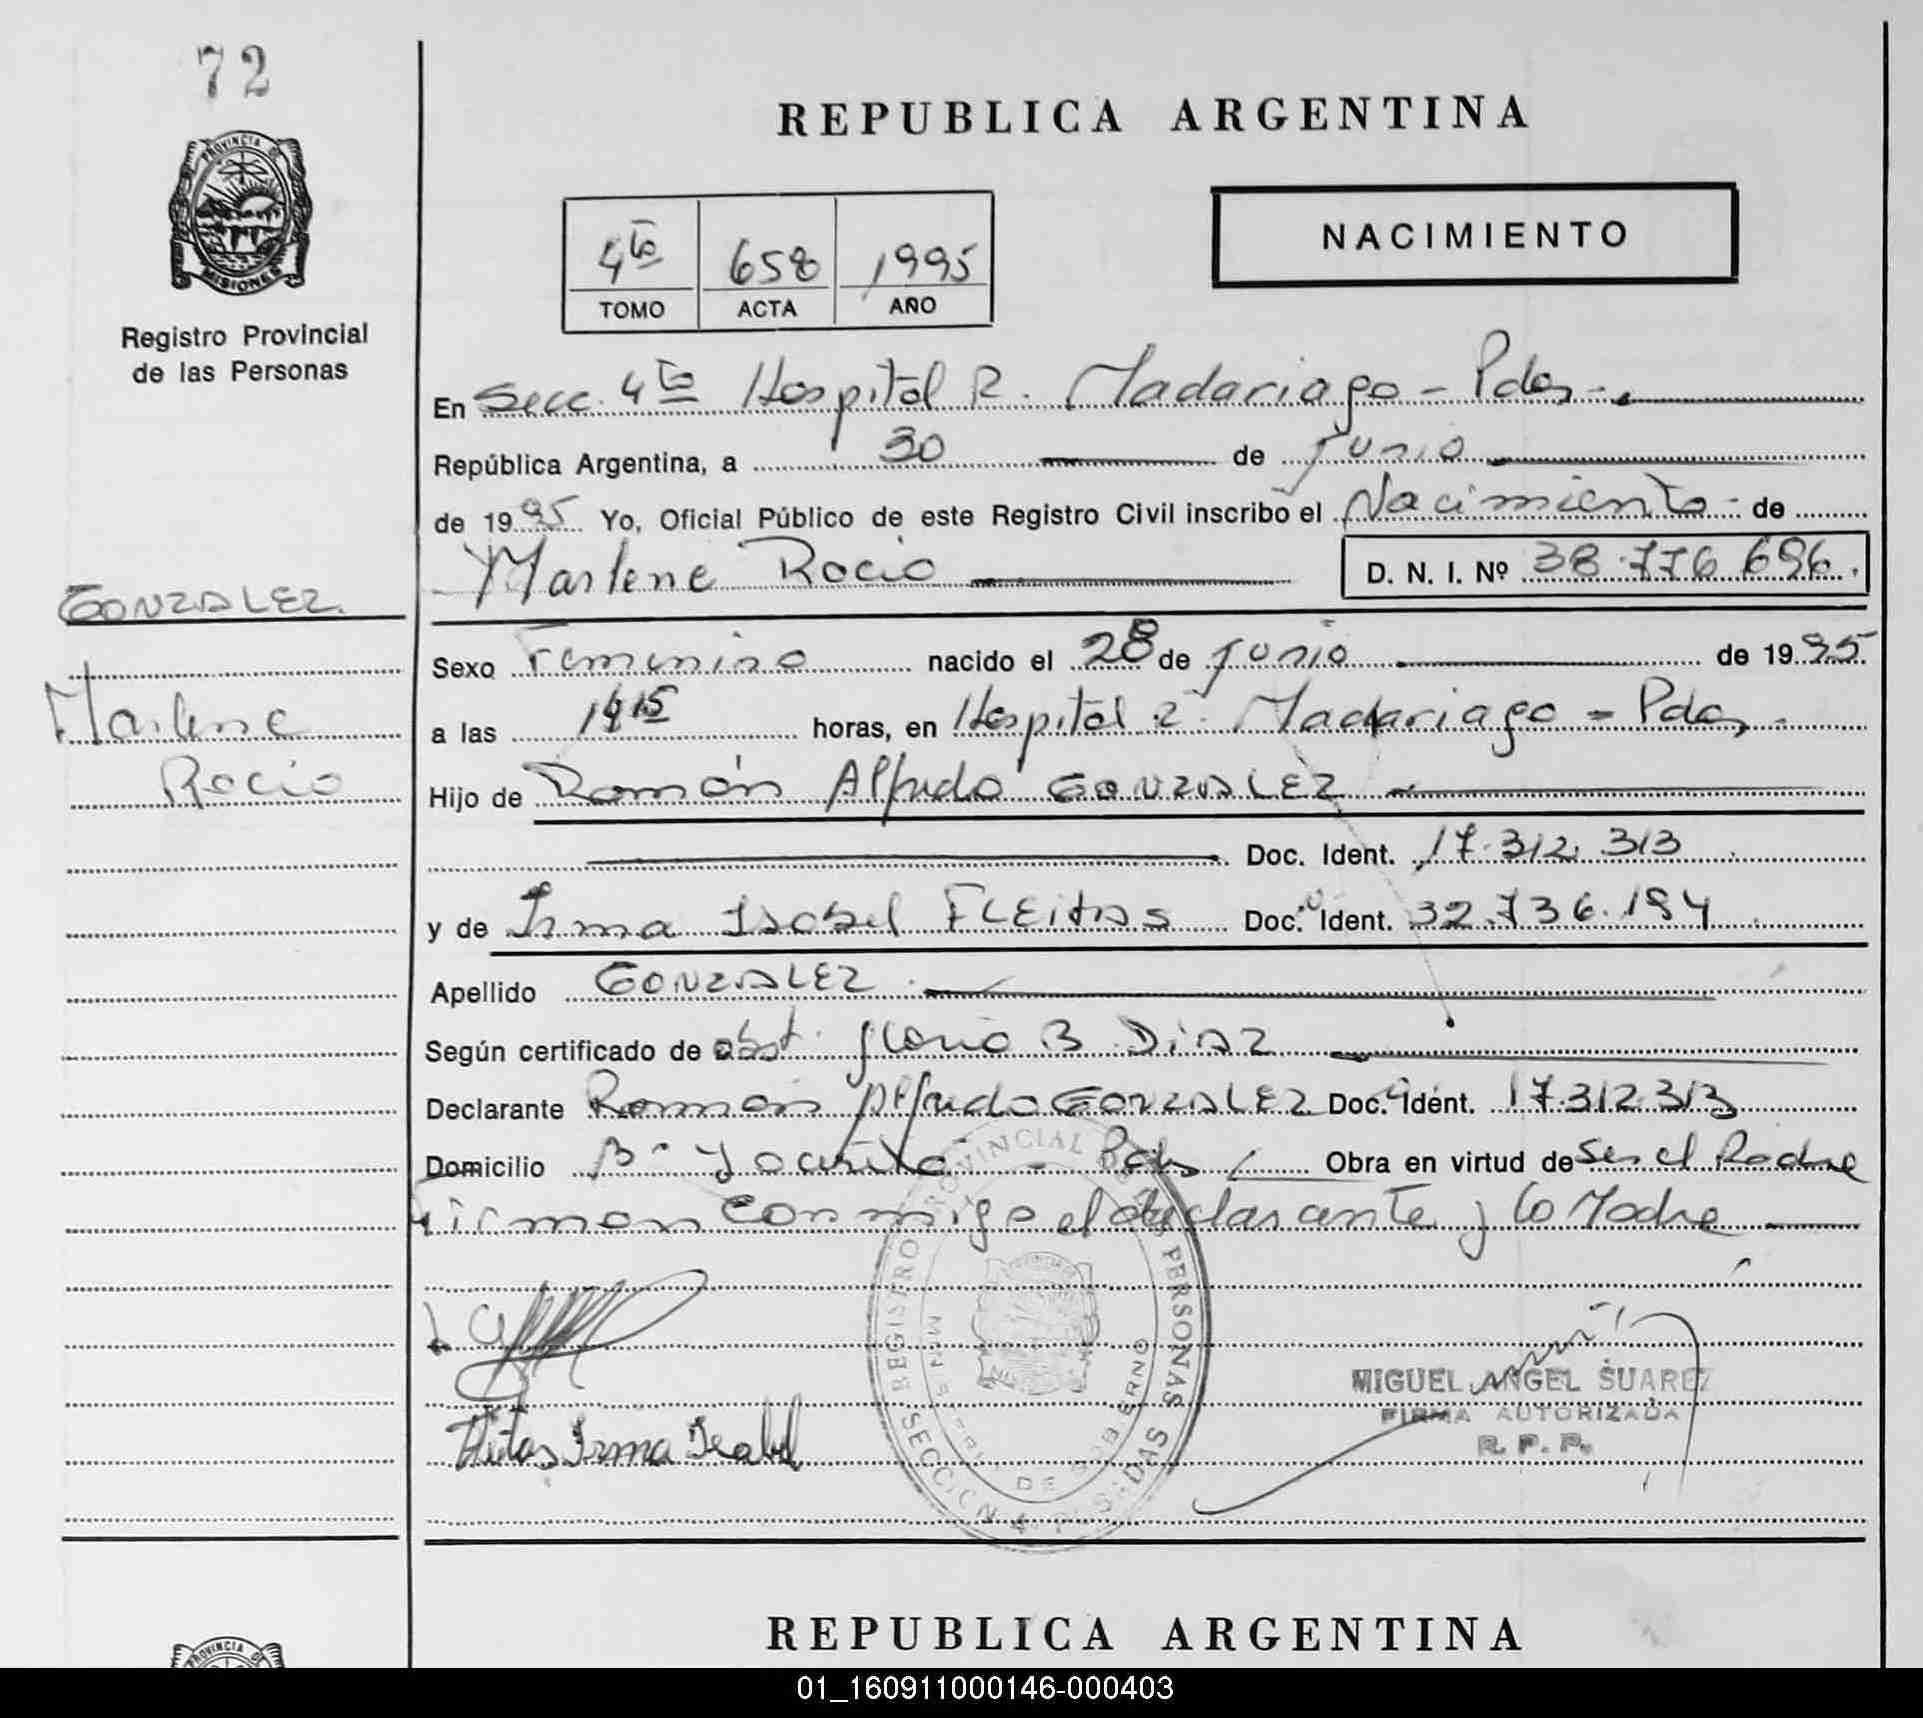 72
PROVINCIA DE
MISIONES
Registro Provincial
de las Personas
REPUBLICA ARGENTINA
4to 658 1995
TOMO ACTA AÑO
NACIMIENTO
En Secc. 4ta Hospital R. Madariaga - Pdas -
República Argentina, a 30 de junio
de 1995 Yo, Oficial Público de este Registro Civil inscribo el Nacimiento - de
Marlene Rocio D. N. I. Nº 38.776.696.
GONZALEZ
Marlene
Rocio
Sexo Femenino nacido el 28 de junio de 1995
a las horas, en Hospital R. Madariaga - Pdas -
Hijo de Ramón Alfredo GONZALEZ
Doc. Ident. 17.312.313
y de Irma Isabel FLEITAS Doc. Ident. 32.736.194
Apellido GONZALEZ
Según certificado de obst. Gloria B. DIAZ
Declarante Ramón Alfredo GONZALEZ Doc. Ident. 17.312.313
Domicilio Bº Yacyretá - Pdas Obra en virtud de Ser el Padre
Firman conmigo el declarante y la Madre
REGISTRO PROVINCIAL DE LAS PERSONAS
MINISTERIO DE GOBIERNO
SECCION 4a POSADAS
Fleitas Irma Isabel
MIGUEL ANGEL SUAREZ
FIRMA AUTORIZADA
R. P. P.
REPUBLICA ARGENTINA
PROVINCIA
01_160911000146-000403